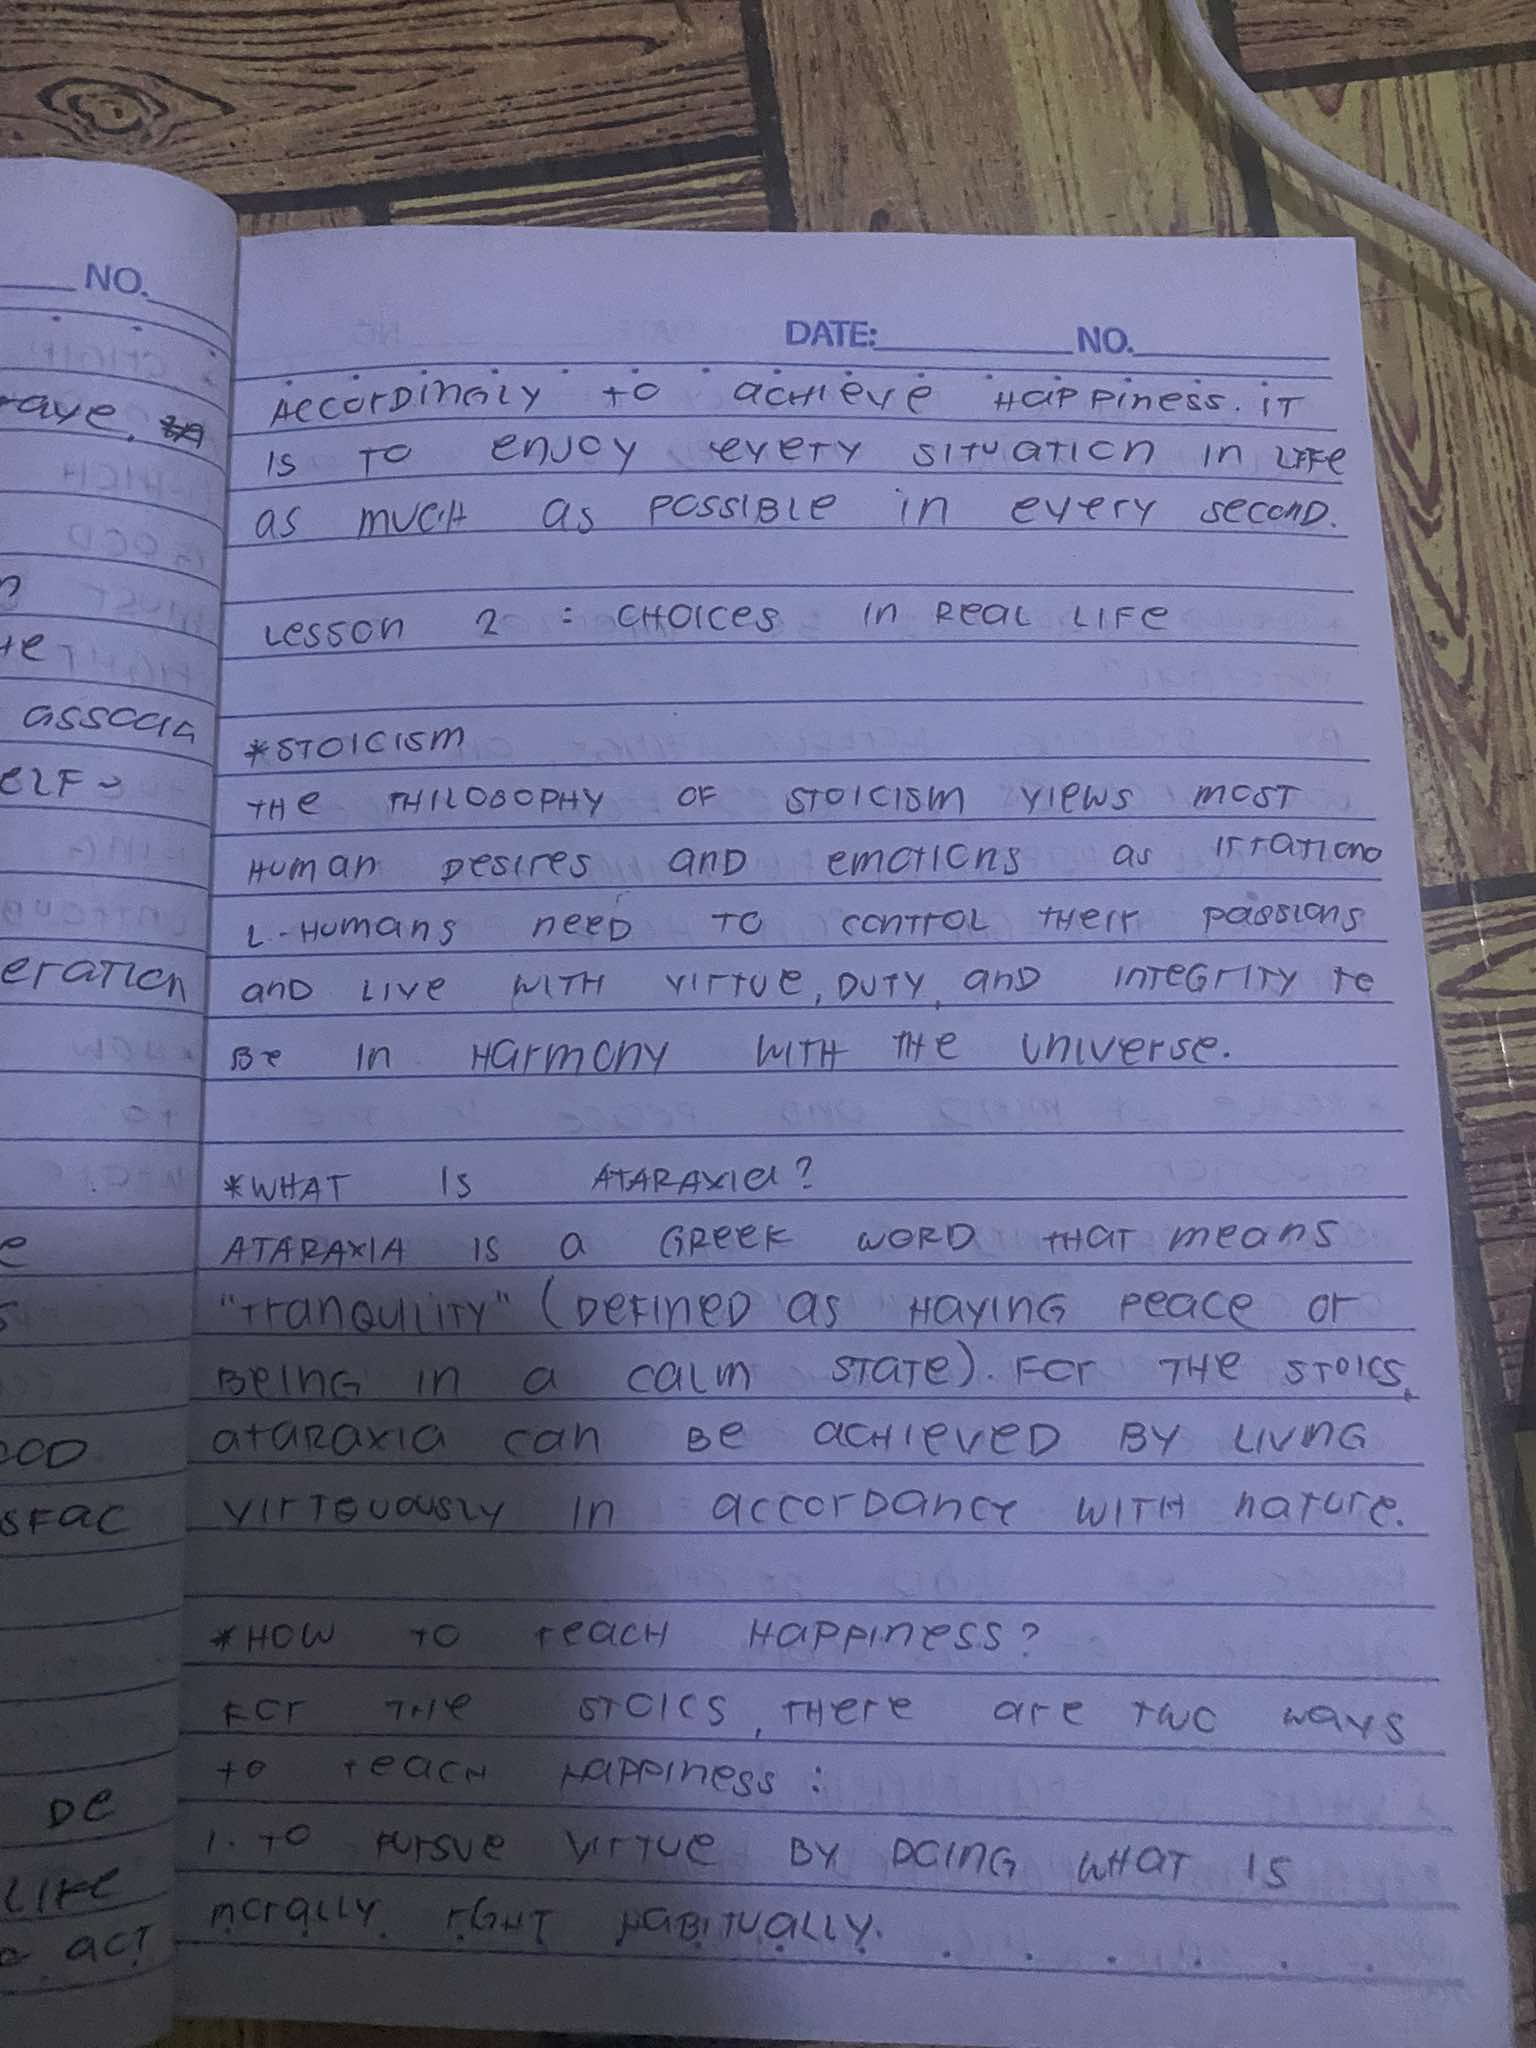 NO.
raye.
associa
ELF-
eration
OOD
SFAC
DE
LIKE
ACT
DATE: NO.
Accordingly to achieve Happiness. it
is to enjoy every situation in life
as much as possible in every second.
Lesson 2 : Choices in Real Life
*STOICISM
The Philosophy of Stoicism views most
Human Desires and emotions as irrationa
l. Humans need to control their passions
and live with virtue, duty, and integrity to
Be in Harmony with the universe.
*WHAT is ATARAXIA?
ATARAXIA is a Greek word that means
"tranquility" (Defined as Having peace or
Being in a calm state). For the Stoics,
ataraxia can Be achieved By Living
virteuously in accordance with nature.
*How to reach Happiness?
For the Stoics, there are two ways
to reach Happiness:
1. To pursue virtue By Doing what is
morally right Habitually.